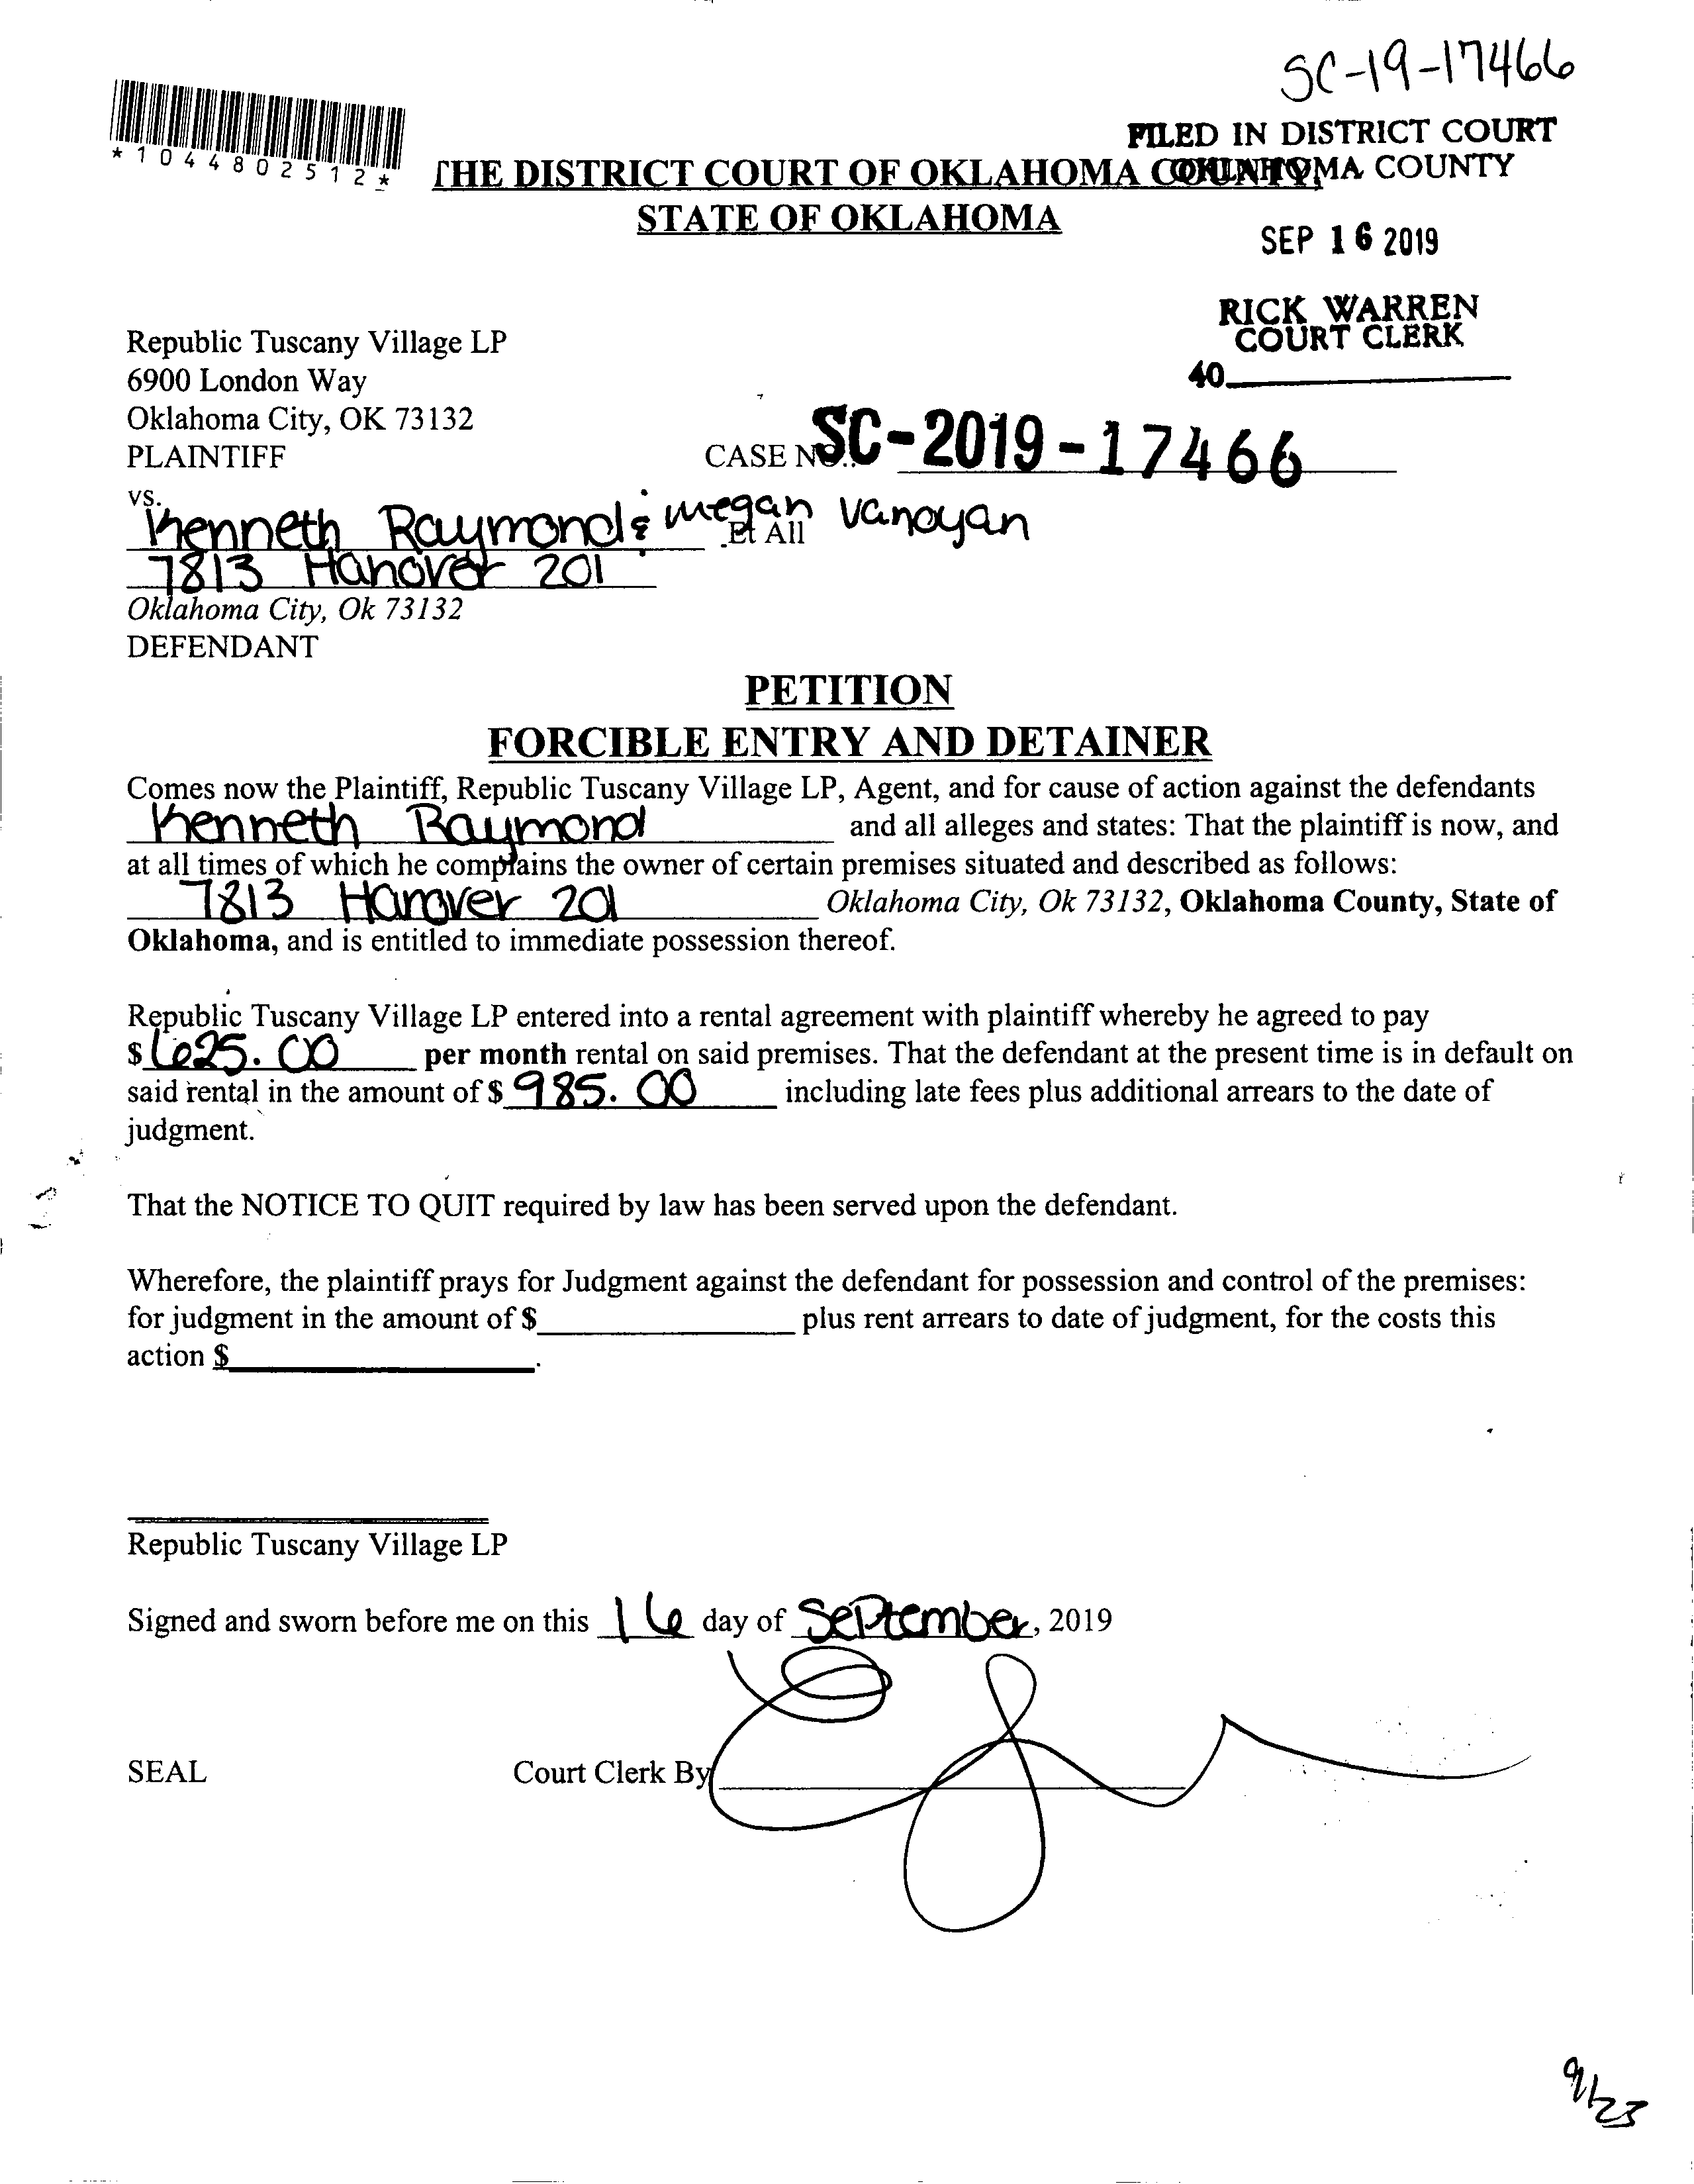 SC-19-17466
*1044802512*
FILED IN DISTRICT COURT
OKLAHOMA COUNTY
THE DISTRICT COURT OF OKLAHOMA COUNTY,
STATE OF OKLAHOMA
SEP 16 2019
RICK WARREN
COURT CLERK
40
Republic Tuscany Village LP
6900 London Way
Oklahoma City, OK 73132
PLAINTIFF
CASE NO.: SC-2019-17466
vs.
Kenneth Raymond & megan vanoyan
Et All
7813 Hanover 201
Oklahoma City, Ok 73132
DEFENDANT
PETITION
FORCIBLE ENTRY AND DETAINER
Comes now the Plaintiff, Republic Tuscany Village LP, Agent, and for cause of action against the defendants
Kenneth Raymond and all alleges and states: That the plaintiff is now, and
at all times of which he complains the owner of certain premises situated and described as follows:
7813 Hanover 201 Oklahoma City, Ok 73132, Oklahoma County, State of
Oklahoma, and is entitled to immediate possession thereof.
Republic Tuscany Village LP entered into a rental agreement with plaintiff whereby he agreed to pay
$ 625.00 per month rental on said premises. That the defendant at the present time is in default on
said rental in the amount of $ 985.00 including late fees plus additional arrears to the date of
judgment.
That the NOTICE TO QUIT required by law has been served upon the defendant.
Wherefore, the plaintiff prays for Judgment against the defendant for possession and control of the premises:
for judgment in the amount of $ plus rent arrears to date of judgment, for the costs this
action $ .
Republic Tuscany Village LP
Signed and sworn before me on this 16 day of September, 2019
SEAL Court Clerk By
9/23